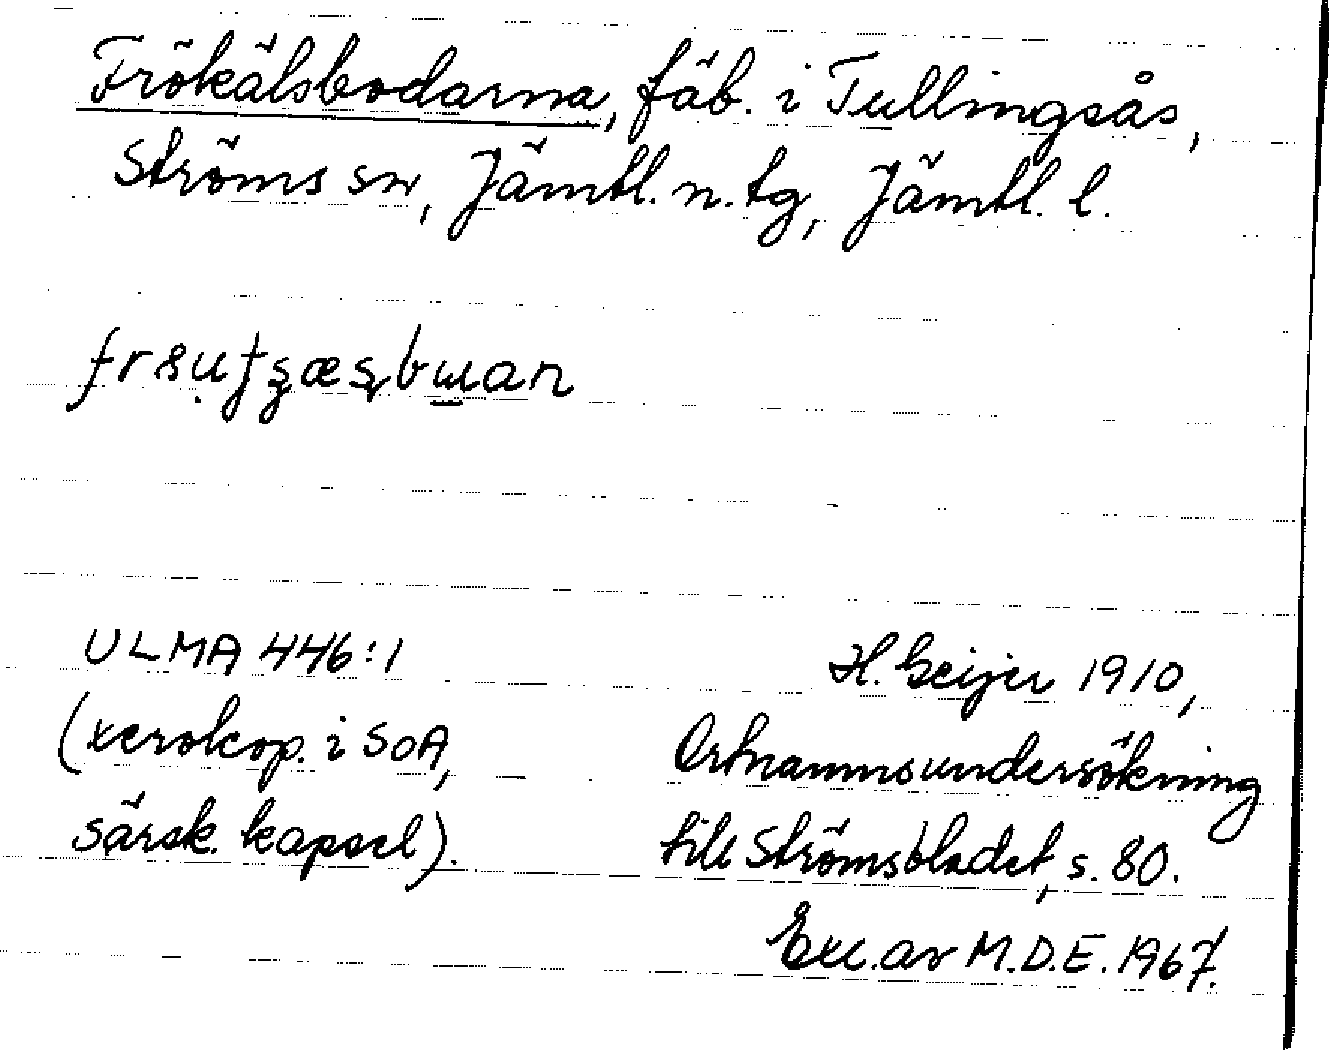 Frökälsbodarna, fäb. i Tullingsås,
Ströms sn, Jämtl. n. tg, Jämtl. l.
ULMA 446:1
H. Geijer 1910,
(xerokop. i SOA,
Ortnamnsundersökning
särsk. kapsel).
till Strömsbladet, s. 80.
Exc. av M.D.E. 1967.